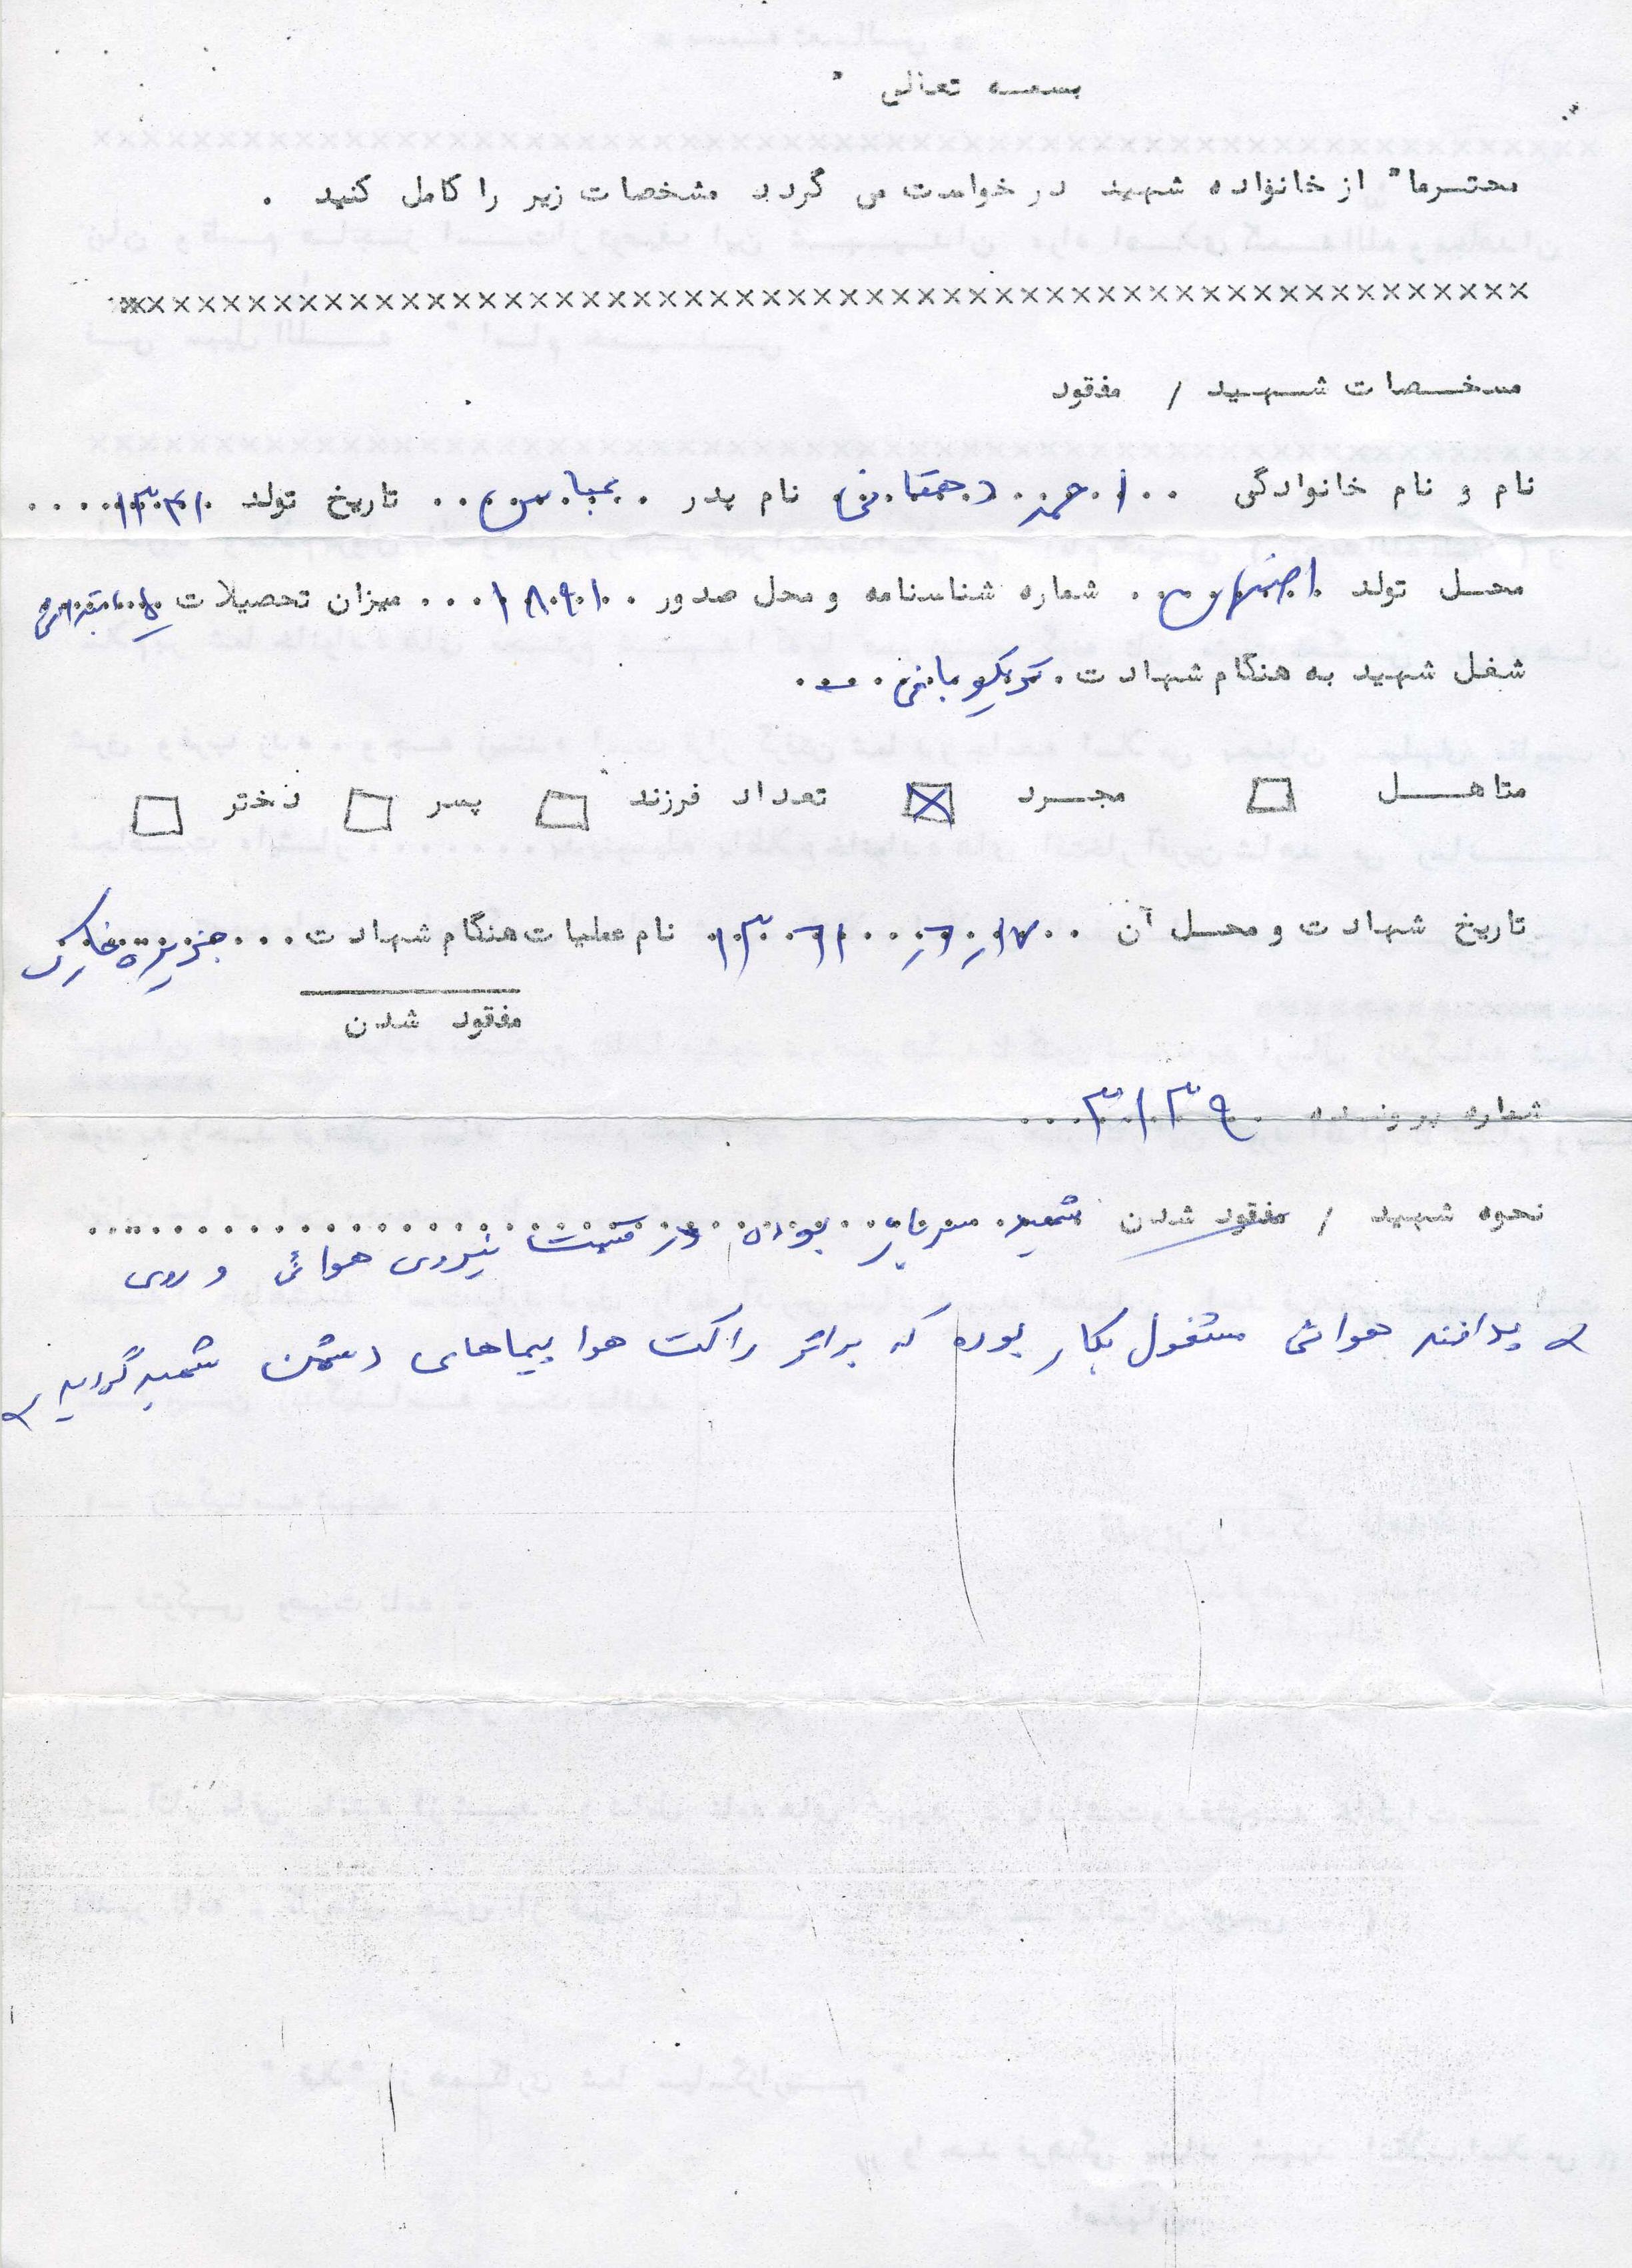 بسمه تعالی "
محترما" از خانواده شهید درخواست می گردد مشخصات زیر را کامل کنید .
××××××××××××××××××××××××××××××××××××××××××××××××××××××
مشخصات شهید / مفقود
نام و نام خانوادگی .. احمد دهقانی نام پدر . عباس .. تاریخ تولد ۱۳۴۱ ....
محل تولد اصفهان .. شماره شناسنامه و محل صدور .. ۱۸۹۱ ... میزان تحصیلات ابتدائی
شغل شهید به هنگام شهادت . تریکو بافی ...
متاهل ☐ مجرد ☒ تعداد فرزند ☐ پسر ☐ دختر ☐
تاریخ شهادت و محل آن .. ۱۷ر۶ر ... ۱۳۶۱ نام عملیات هنگام شهادت ... جزیره خارک
مفقود شدن
شماره پرونده .. ۳۱۳۹ ...
نحوه شهید / مفقود شدن شهید سرباز بوده در قسمت نیروی هوائی و روی
پدافند هوائی مشغول بکار بوده که براثر راکت هواپیماهای دشمن شهید گردید